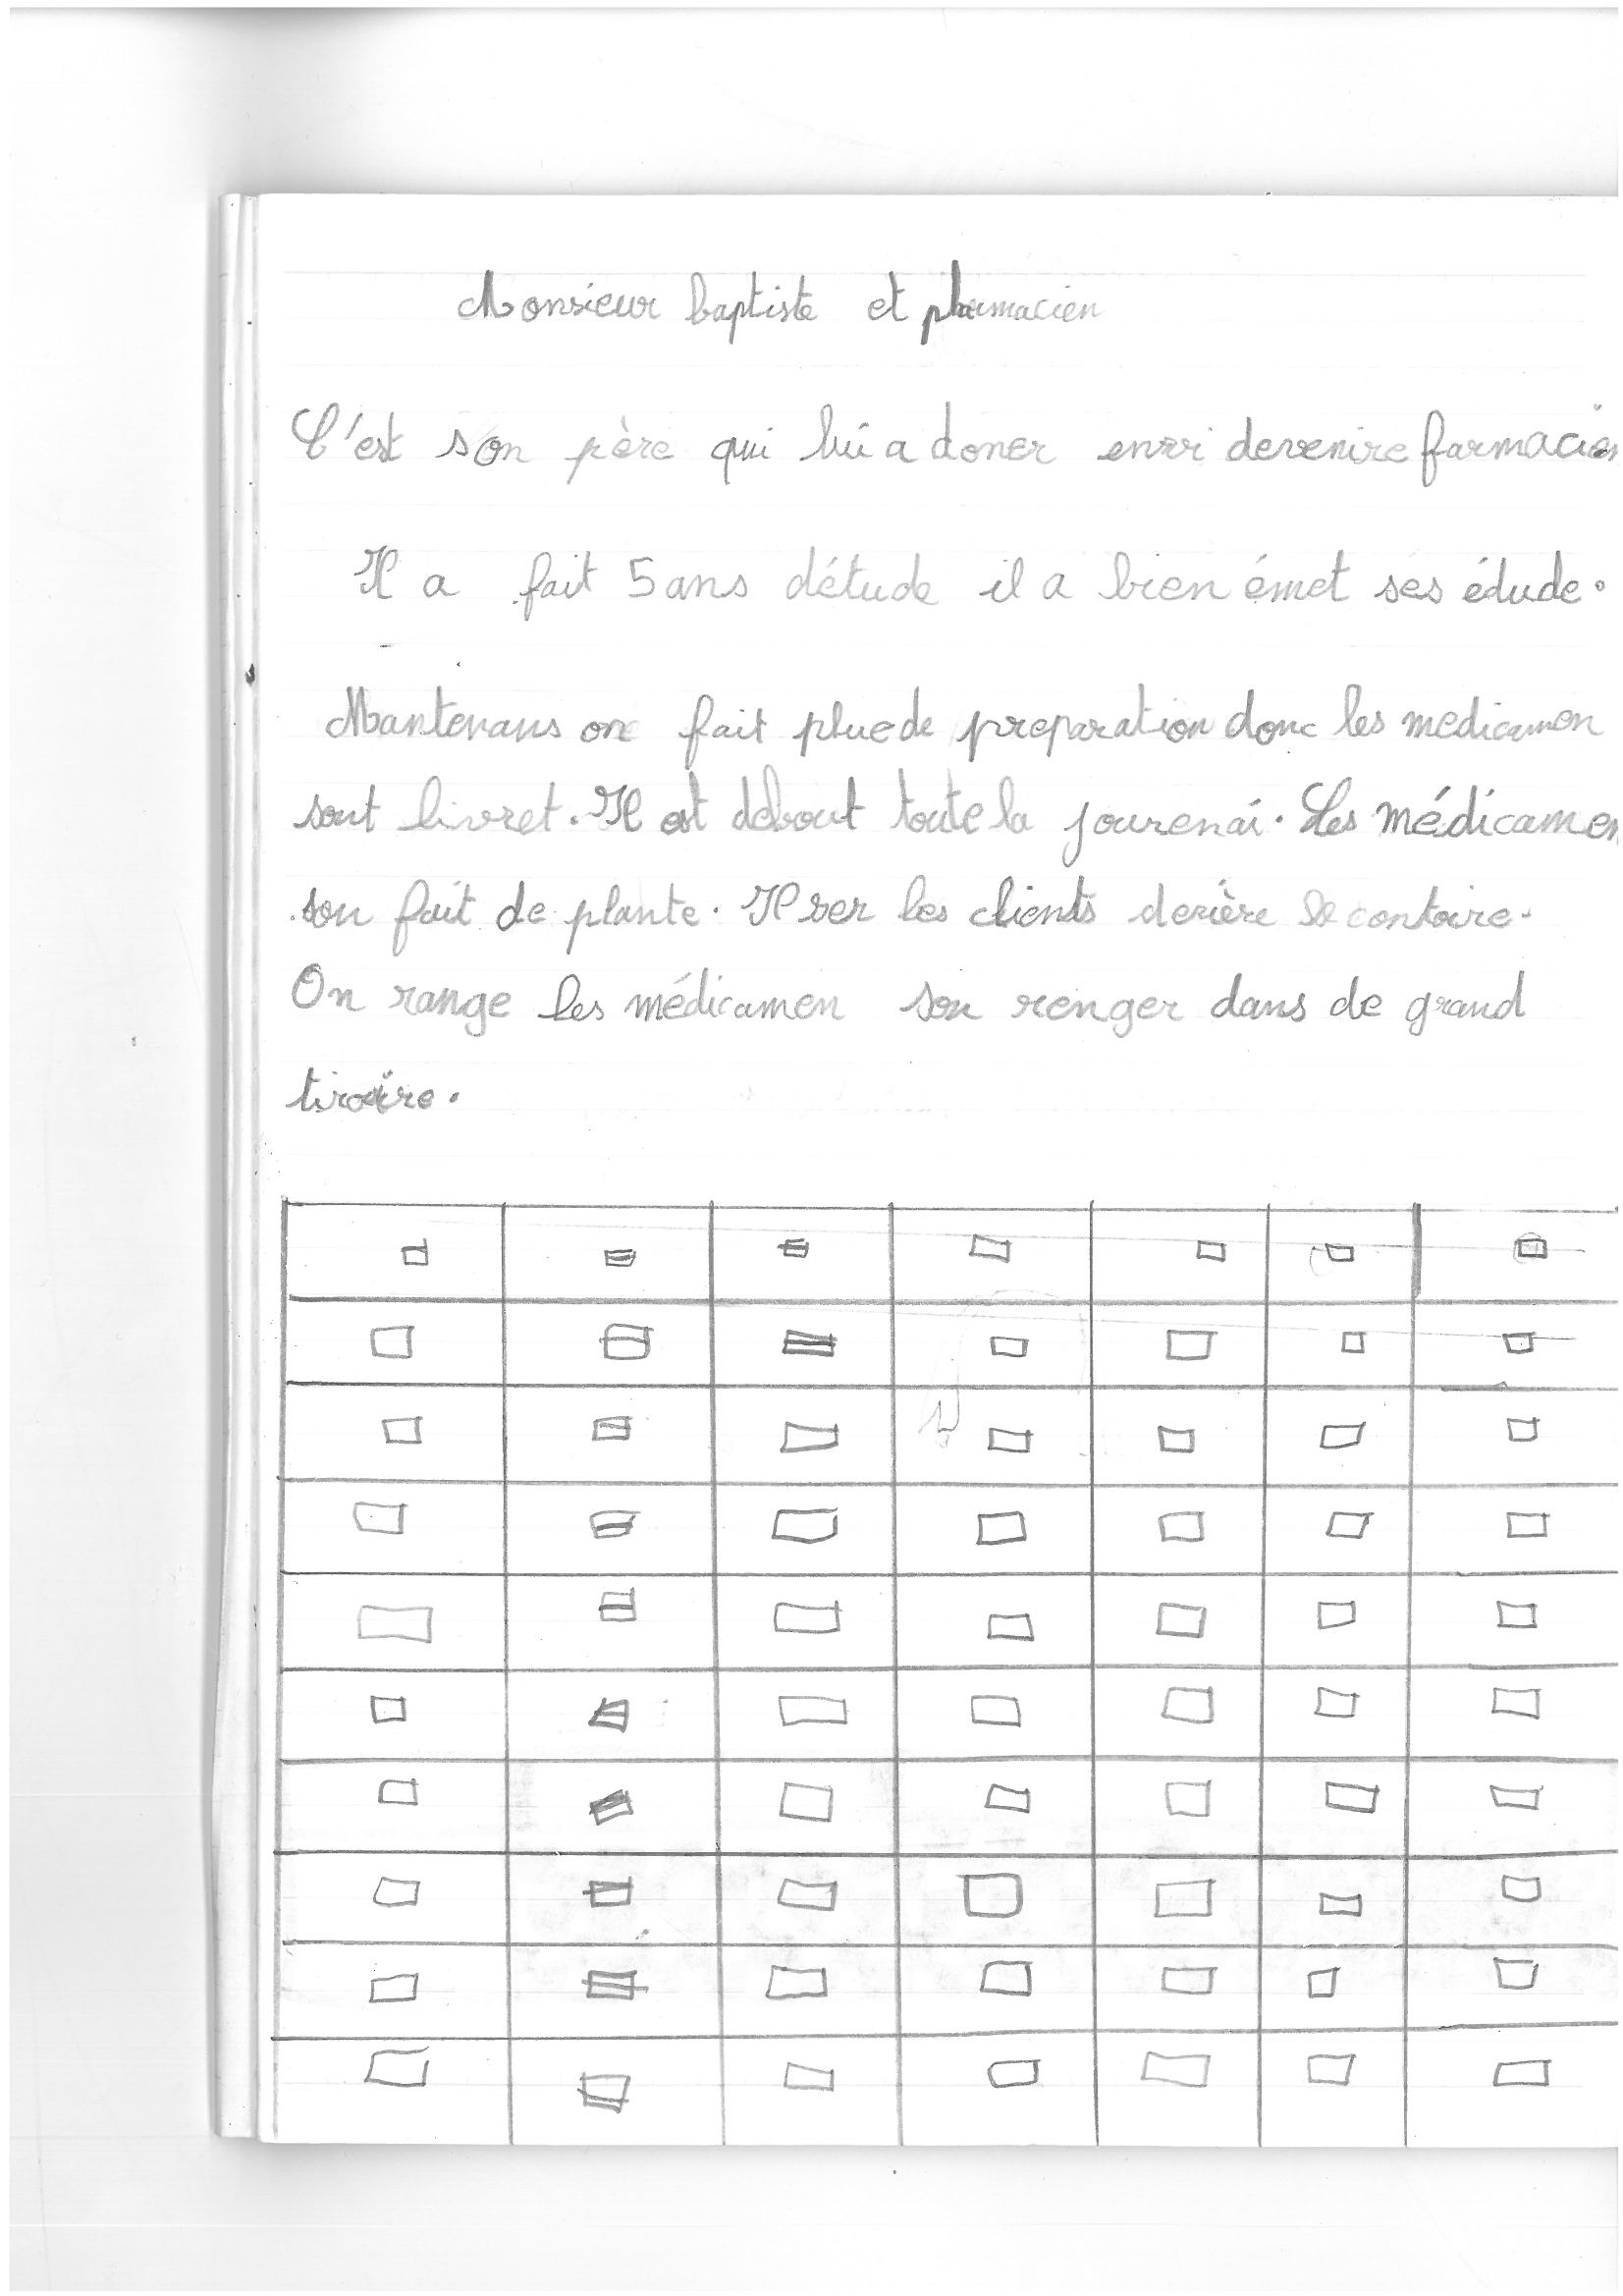 Monsieur baptiste et pharmacien
C'est son père qui lui a doner envi devenire farmacien
Il a fait 5 ans détude il a bien émet ses édude.
Mantenans on fait plue de preparation donc les medicamen
sont livret. Il est debout toute la jourenai. Les médicamen
son fait de plante. Il ser les clients derière le contoire.
On range les médicamen son renger dans de grand
tiroire.